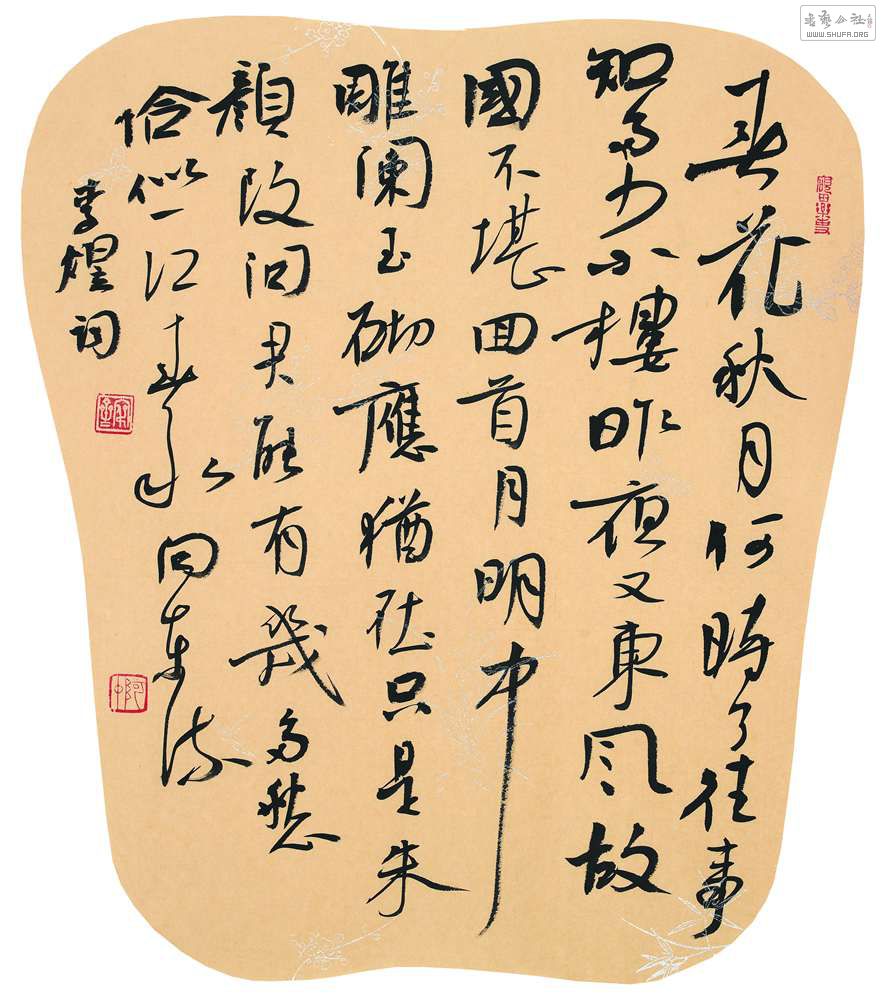 春花秋月何時了往事
知多少小樓昨夜又東風故
國不堪回首月明中
雕闌玉砌應猶在只是朱
顔改問君能有幾多愁
恰似一江春水向東流
李煜詞
書藝公社
WWW.SHUFA.ORG